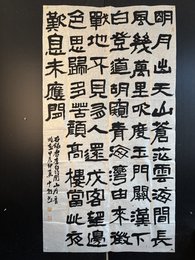 明月出天山蒼茫雲海間長
風幾萬里吹度玉門關漢下
白登道胡窺青海灣由來征
戰地不見有人還戍客望邊
色思歸多苦顏高樓當此夜
歎息未應閒
李白關山月